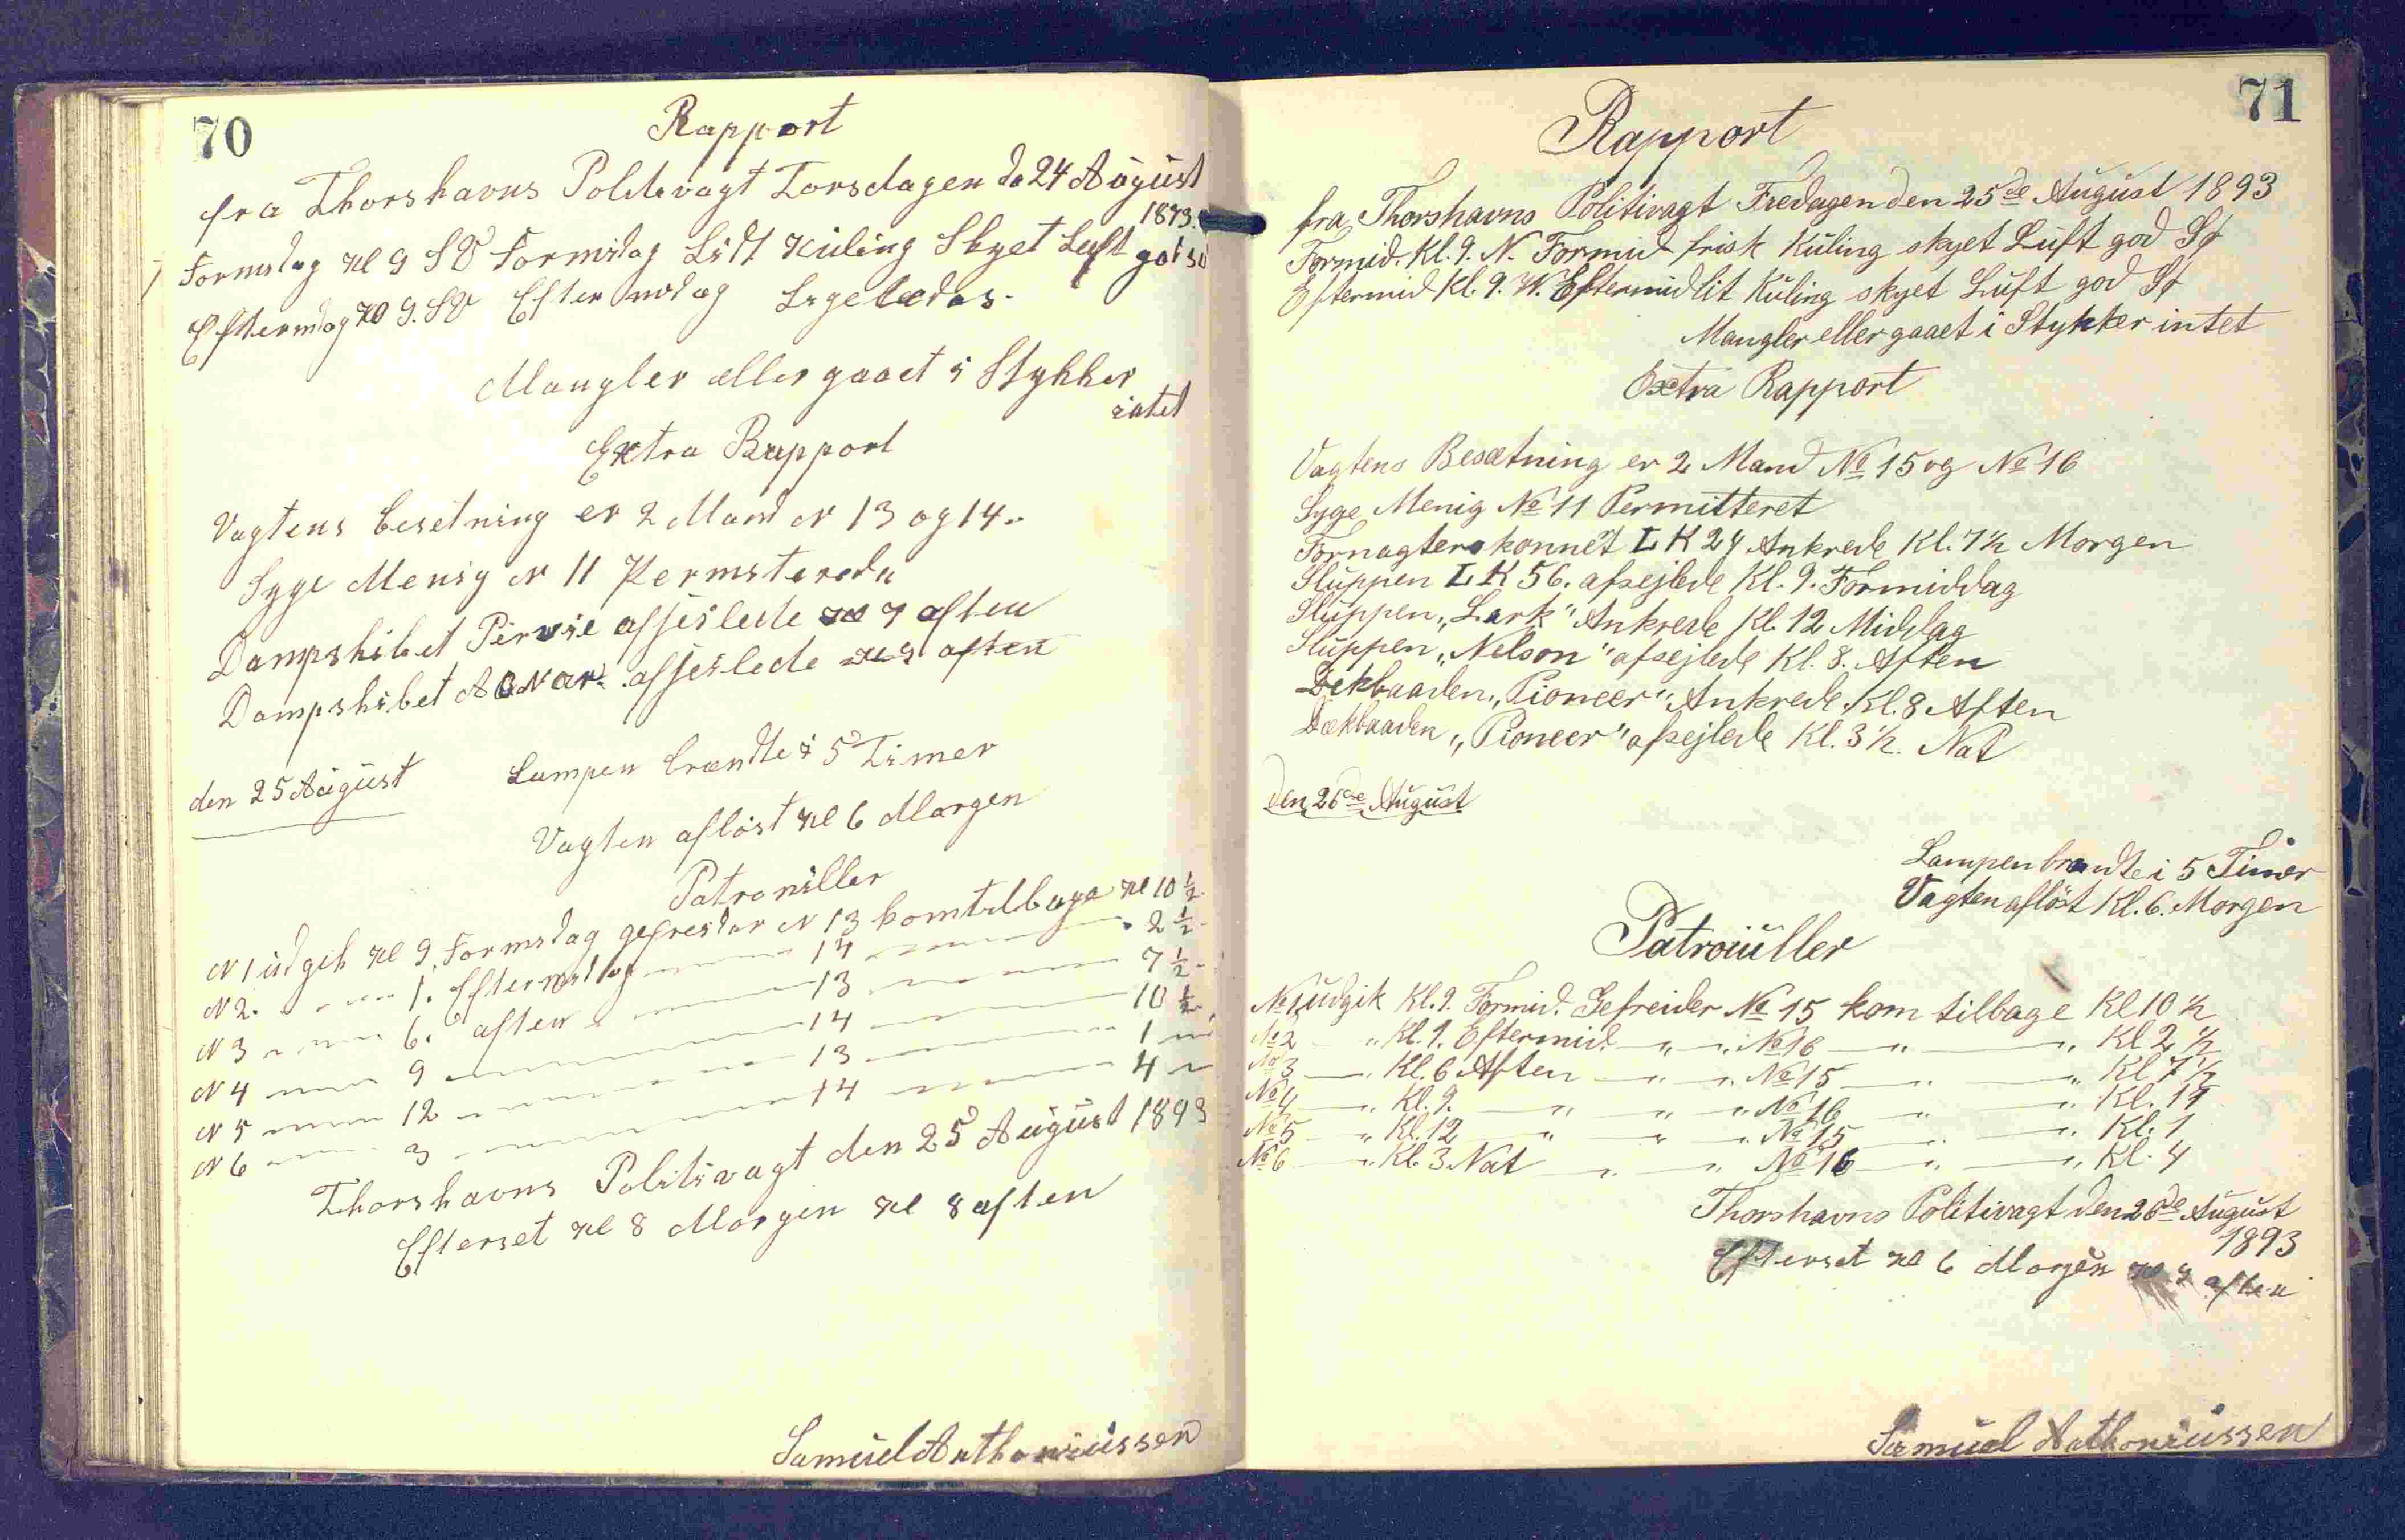 70
Rapport
fra Thorshavns Politivagt Torsdagen d. 24 August
1893.
Formidag Kl 9 SV Formidag Lidt Kuling Skyet Luft got
Eftermidag Kl 9. SV Eftermidag Ligeledes.
Mangler eller gaaet i Stykker
intet
Extra Rapport
Vagtens besetning er 2 Mand N 13 og 14.
Syge Menig N 11 Permitered
Dampskibet afseilede Kl 7 aften
Dampskibet afseilede Kl 9 aften
Lampen brændte i 5 Timer
den 25 August
Vagten afløst Kl 6 Morgen
Patrouiller
N 1 udgik Kl 9. Formidag gefreider N 13 kom tilbage Kl 10 ½
N 2. " — 1. Eftermidag — 14 — 2 ½
N 3 — 6. aften — 13 — 7 ½
N 4 — 9 — 14 — 10 ½
N 5 — 12 — 13 — 1 —
N 6 — 3 — 14 — 4 —
Thorshavns Politivagt den 25 August 1893
Efterset Kl 8 Morgen Kl 8 aften
Samuel Anthoniussen
71
Rapport
fra Thorshavns Politivagt Fredagen den 25de August 1893
Formid. Kl. 9. N. Formid frisk Kuling skyet Luft god
Eftermid Kl. 9. W. Eftermid lit Kuling skyet Luft god
Mangler eller gaaet i Stykker intet
Extra Rapport
Vagtens Besætning er 2 Mand No 15 og No 16
Syge Menig No 11 Permitteret
LK 24 Ankrede Kl. 7½ Morgen
Sluppen LK 56. afsejlede Kl. 9. Formiddag
Sluppen "Lark" Ankrede Kl. 12 Middag
Sluppen "Nelson" afsejlede Kl. 8. Aften
Dekbaaden "Pioneer" Ankrede Kl. 8 Aften
Dækbaaden "Pioneer" afsejlede Kl. 3½. Nat
Den 26de August
Lampen brændte i 5 Timer
Vagten afløst Kl. 6. Morgen
Patrouiller
No 1 udgik Kl. 9. Formid. Gefreider No 15 kom tilbage Kl 10 ½
No 2 — " Kl. 1. Eftermid — " — " No 16 — " — " Kl 2 ½
No 3 — " Kl. 6 Aften — " — " No 15 — " — " Kl 7 ½
No 4 — " Kl. 9. — " — " — " No 16 — " — " Kl. 11
No 5 — " Kl. 12 — " — " — " No 15 — " — " Kl. 1
No 6 — " Kl. 3 Nat — " — " No 16 — " — " Kl. 4
Thorshavns Politivagt den 26de August
1893
Efterset Kl 6 Morgen Kl 8 aften
Samuel Anthoniussen